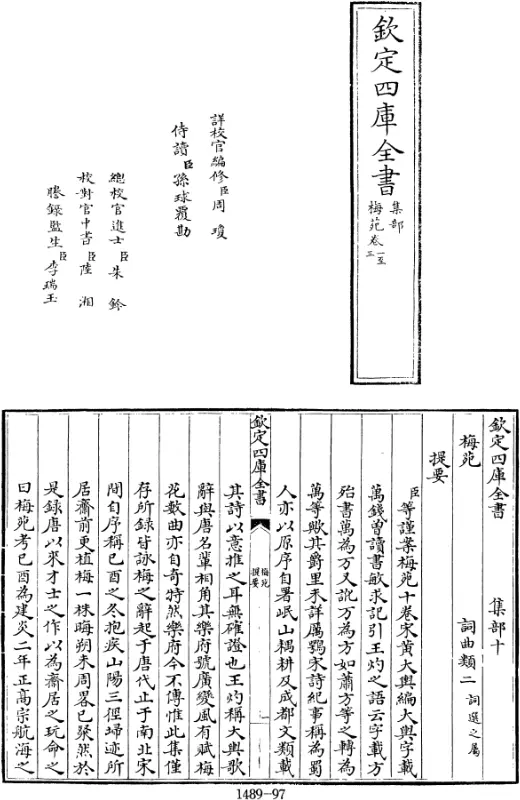 欽定四庫全書
集部
梅苑卷一至三
詳校官編修臣周瓊
侍讀臣孫球覆勘
總校官進士臣朱鈐
校對官中書臣陸湘
謄錄監生臣李瑞玉
欽定四庫全書 集部十
梅苑 詞曲類二詞選之屬
提要
臣等謹案梅苑十卷宋黃大輿編大輿字載
萬錢曾讀書敏求記引王灼之語云字載方
殆書萬為万又訛万為方如蕭方等之轉為
萬等歟其爵里未詳厲鶚宋詩紀事稱為蜀
人亦以原序自署岷山耦耕及成都文類載
欽定四庫全書 梅苑 提要 一
其詩以意推之耳無確證也王灼稱大輿歌
辭與唐名輩相角其樂府號廣變風有賦梅
花數曲亦自奇特然樂府今不傳惟此集僅
存所録皆詠梅之辭起于唐代止于南北宋
間自序稱已酉之冬抱疾山陽三徑埽迹所
居齋前更植梅一株晦朔未周畧已粲然於
是録唐以來才士之作以為齋居之玩命之
曰梅苑考已酉為建炎二年正高宗航海之
1489-97